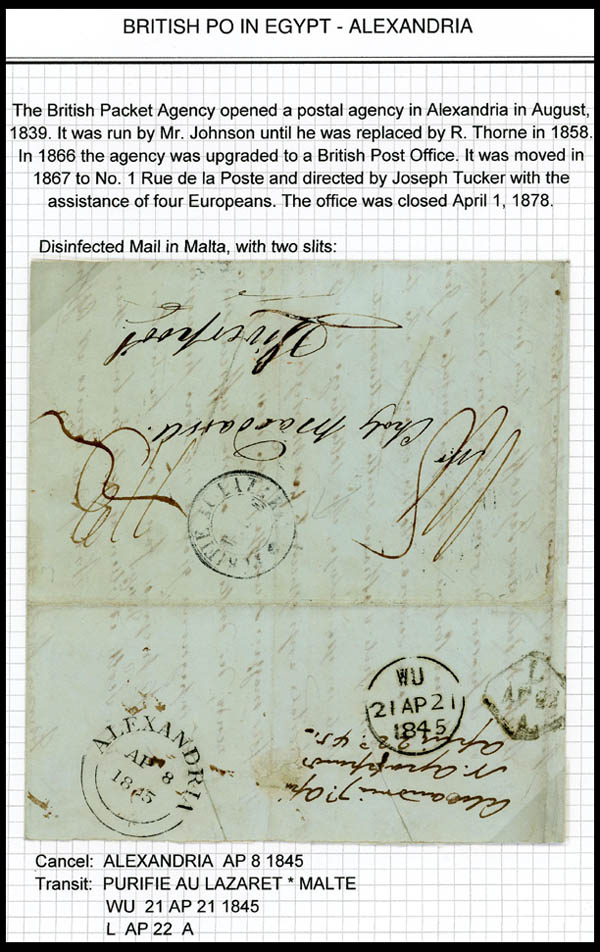 BRITISH PO IN EGYPT - ALEXANDRIA
The British Packet Agency opened a postal agency in Alexandria in August,
1839. It was run by Mr. Johnson until he was replaced by R. Thorne in 1858.
In 1866 the agency was upgraded to a British Post Office. It was moved in
1867 to No. 1 Rue de la Poste and directed by Joseph Tucker with the
assistance of four Europeans. The office was closed April 1, 1878.
Disinfected Mail in Malta, with two slits:
Liverpool
WU
21 AP 21
1845
L
AP 22
A
ALEXANDRIA
AP 8
1845
Cancel: ALEXANDRIA AP 8 1845
Transit: PURIFIE AU LAZARET * MALTE
WU 21 AP 21 1845
L AP 22 A